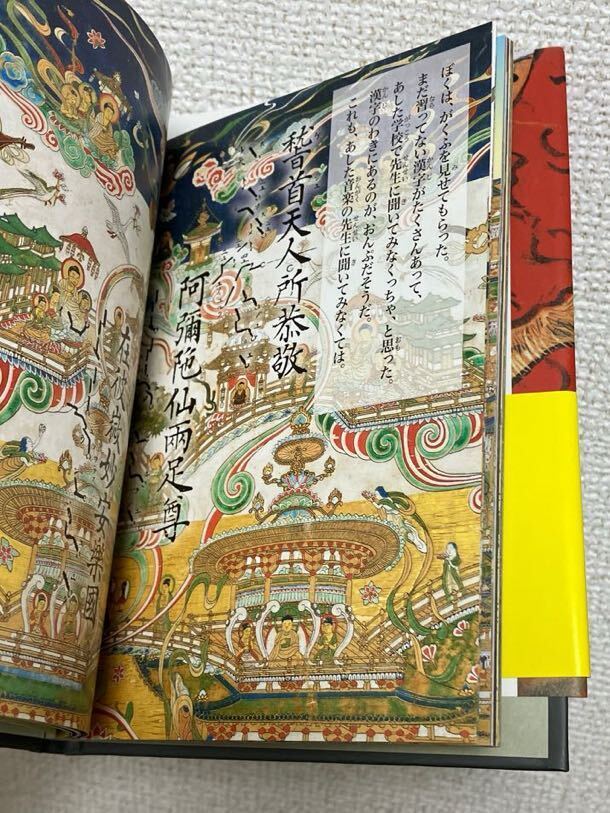 ぼくは、がくふを見せてもらった。
まだ習ってない漢字がたくさんあって、
あした学校で先生に聞いてみなくっちゃ、と思った。
漢字のわきにあるのが、おんぷだそうだ。
これも、あした音楽の先生に聞いてみなくては。
稽首天人所恭敬
阿彌陀仙兩足尊
妙安樂國